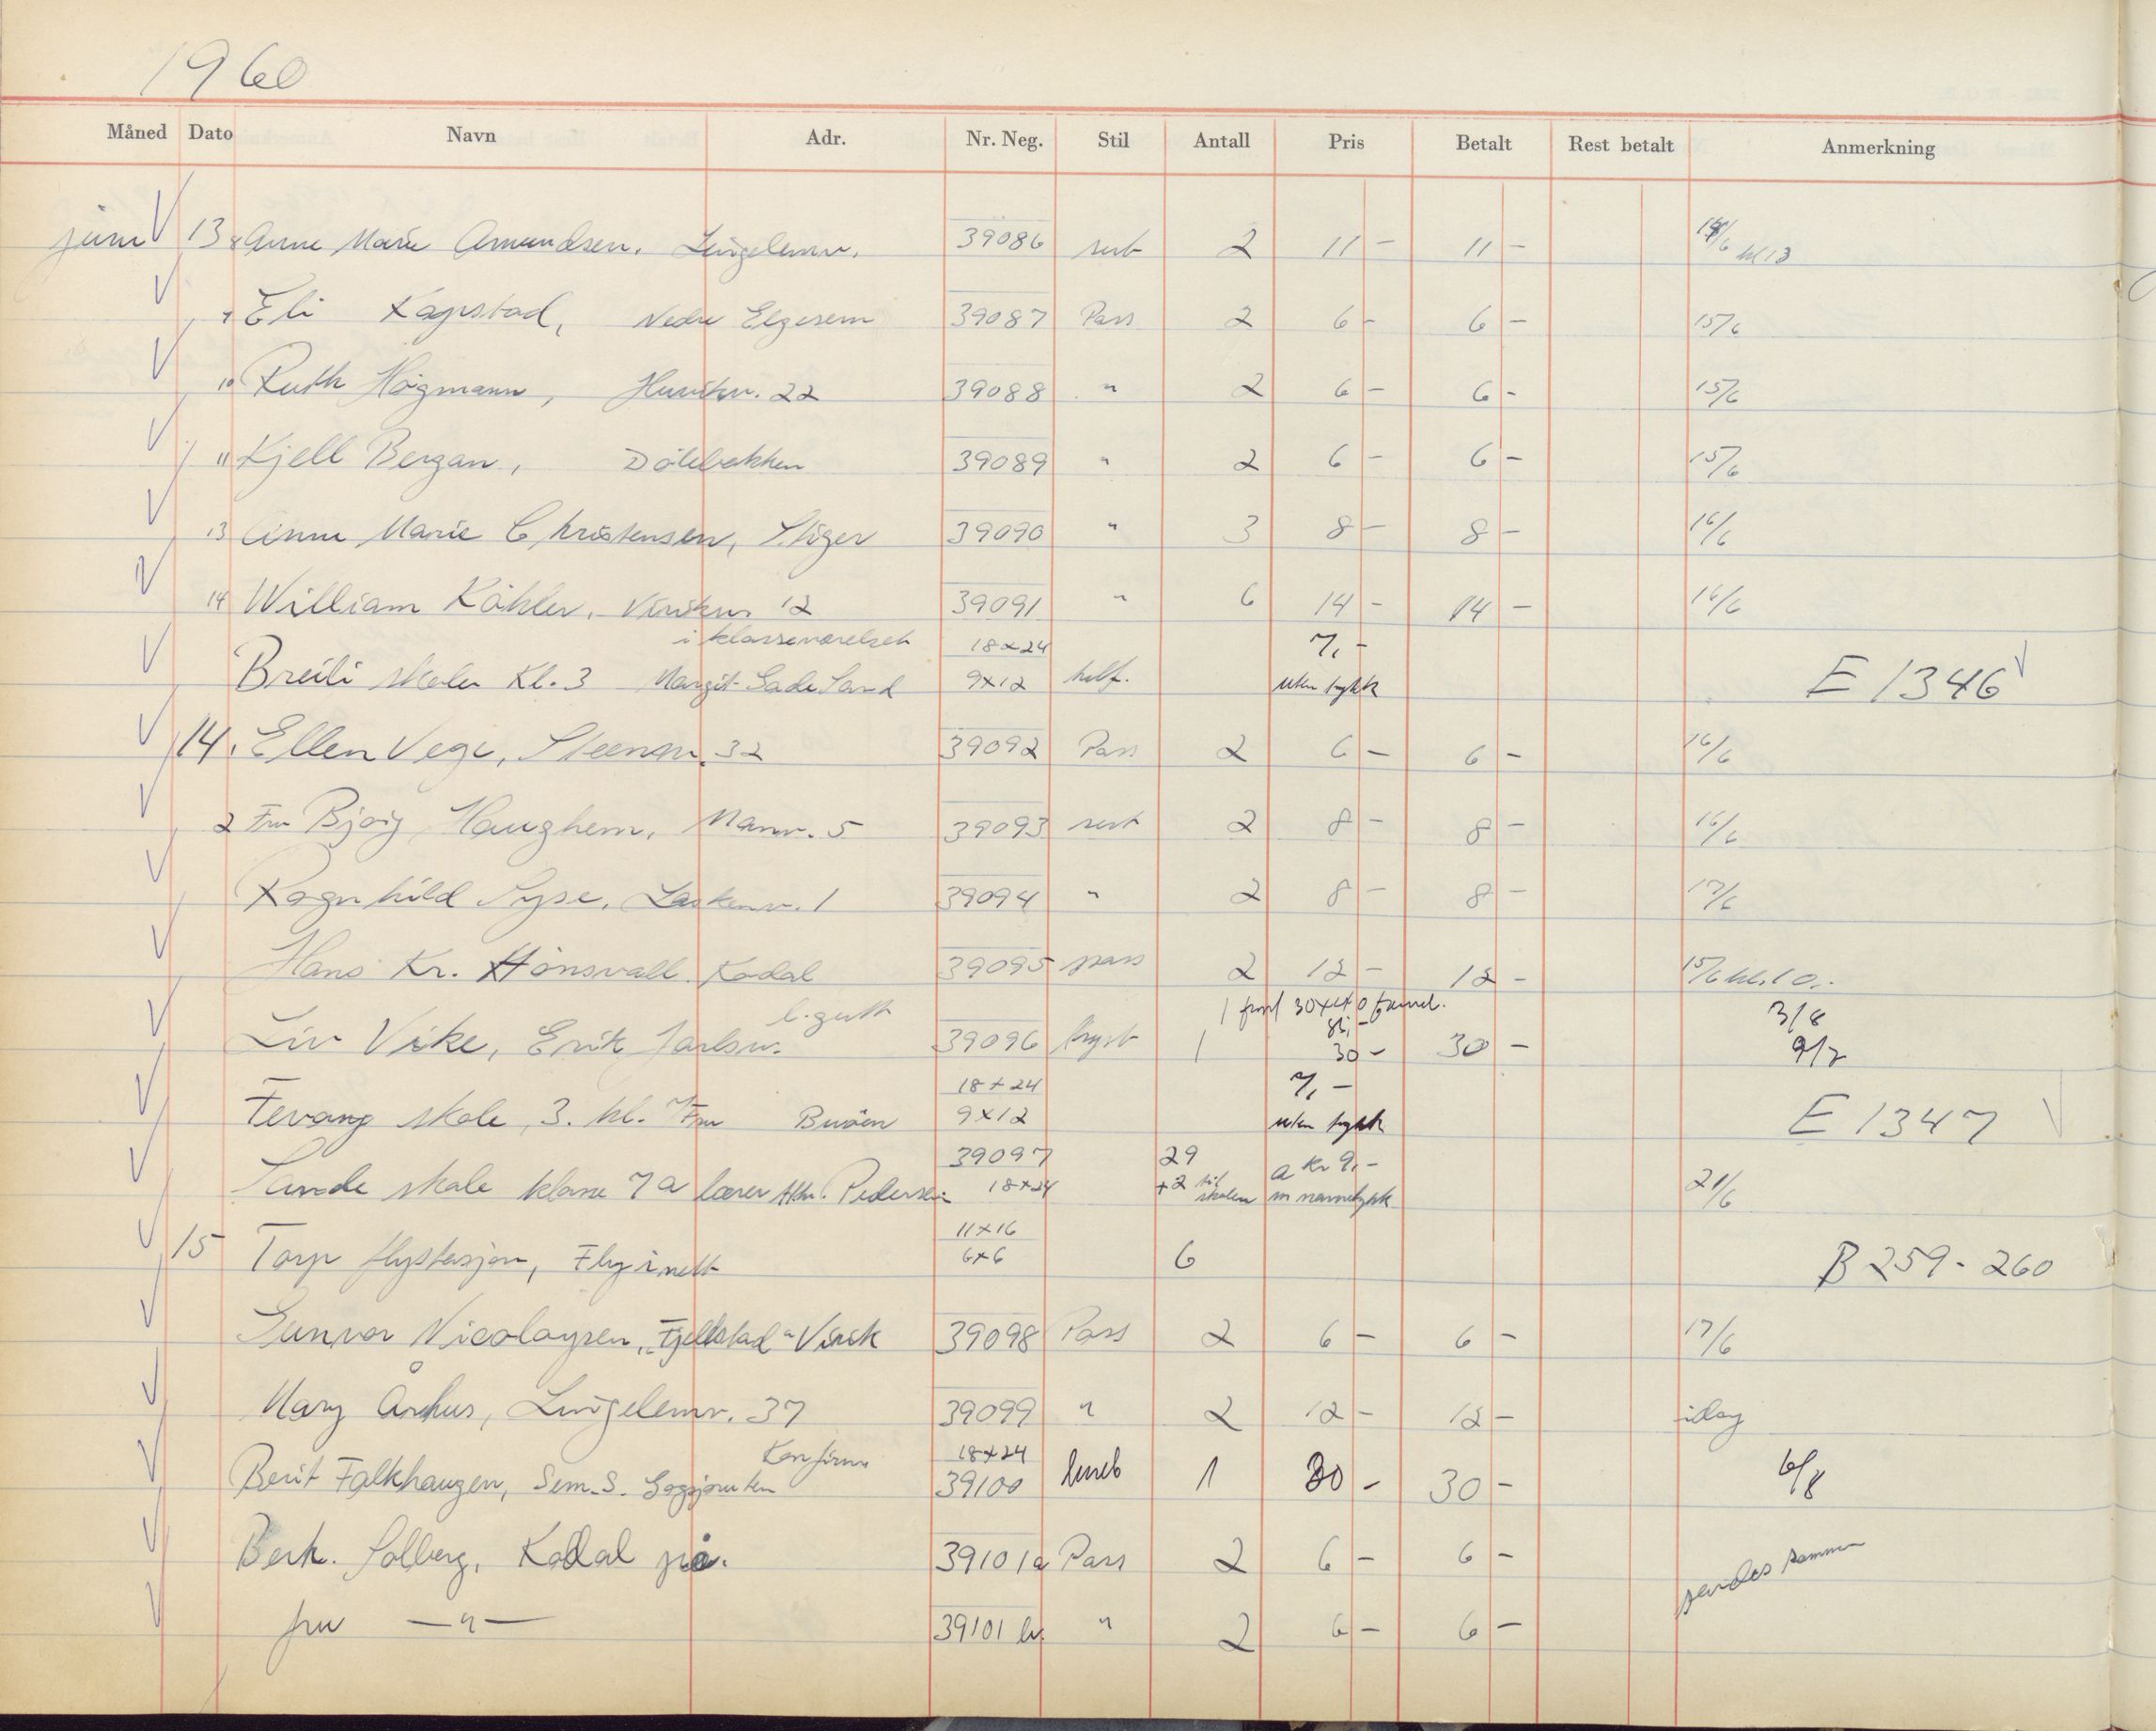 1960
Måned Dato Navn Adr. Nr. Neg. Stil Antall Pris Betalt Rest betalt Anmerkning
juni 13 8 Anne Marie Amundsen, Lingelemv. 39086 2 11 - 11 - kl 13
Eli Kagstad, Nedre Elgesem 39087 Pass 2 6 - 6 - 15/6
10 Ruth Högmann, 22 39088 " 2 6 - 6 - 15/6
11 Kjell Bergan, Dölebakken 39089 " 2 6 - 6 - 15/6
13 Anne Marie Christensen, 39090 " 3 8 - 8 - 16/6
14 William Köhler, 12 39091 " 6 14 - 14 - 16/6
i klasseværelset 18x24 7,-
Breili skole Kl. 3 Margit 9x12 uten trykk E 1346
14. Ellen Vege, Steengr. 32 39092 Pass 2 6 - 6 - 16/6
2 Fru Bjørg Haughem, 5 39093 2 8 - 8 - 16/6
Ragnhild 1 39094 " 2 8 - 8 - 17/6
Hans Kr. Hönsvall Kodal 39095 pass 2 12 - 12 - 15/6 kl. 10.
1 30x40 3/8
Liv Vike, Erik Jarlsv. 39096 bryst 1 30 - 30 - 9/7
18x24 7,-
Fevang skole, 3. kl. Fru Buöen 9x12 uten trykk E 1347
39097 29 a kr 9,-
Sande skole klasse 7a lærer Pedersen 18x24 +2 til skolen m navnetrykk 21/6
11x16
15 Torp flystasjon, Fly i nett 6x6 6 B 259 - 260
Gunvor Nicolaysen, "Fjellstad" Virik 39098 Pass 2 6 - 6 - 17/6
Mary Århus, Lingelemv. 37 39099 " 2 12 - 12 - idag
Konfirm 18x24
Berit Falkhaugen, Sem. S. 39100 1 30 - 30 - 6/8
Berh. Solberg, Kodal 39101a Pass 2 6 - 6 - sendes sammen
fru — " — 39101 b. " 2 6 - 6 -